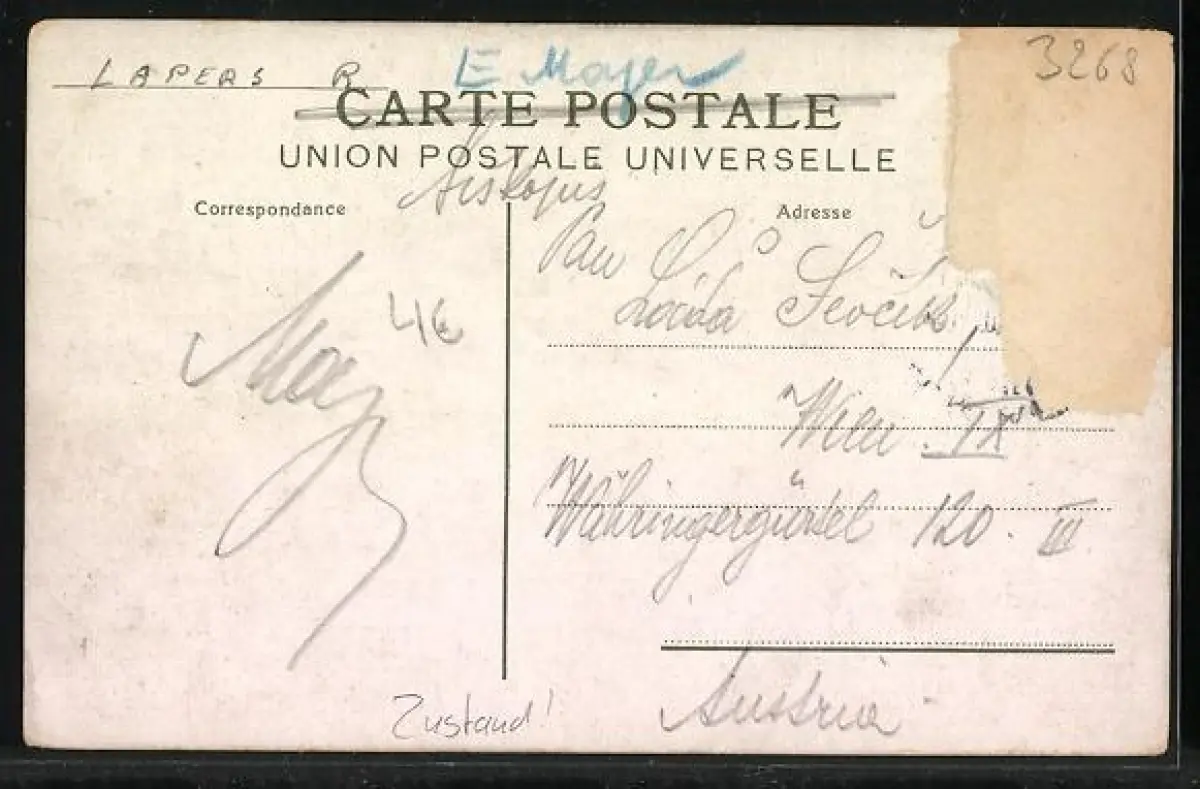 LAPERS R
E Mayer
3268
CARTE POSTALE
UNION POSTALE UNIVERSELLE
Correspondance
Adresse
Pan
Ševčík
46
Wien. IX
Währingergürtel 120. III.
Austria
Zustand!